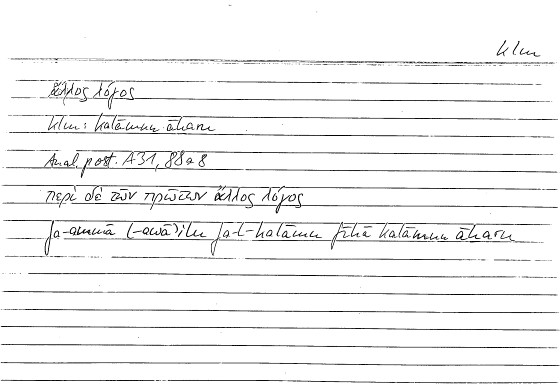 klm
ἄλλος λόγος
klm: kalāmun āḫaru
Anal. post. A31, 88a8
περὶ δὲ τῶν πρώτων ἄλλος λόγος
fa-ammā l-awāʾilu fa-l-kalāmu fīhā kalāmun āḫaru